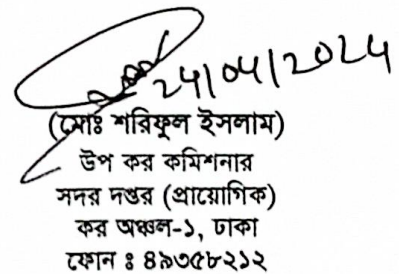 24/04/2024
(মোঃ শরিফুল ইসলাম)
উপ কর কমিশনার
সদর দপ্তর (প্রায়োগিক)
কর অঞ্চল-১, ঢাকা
ফোন ঃ ৪৯৩৫৮২১২